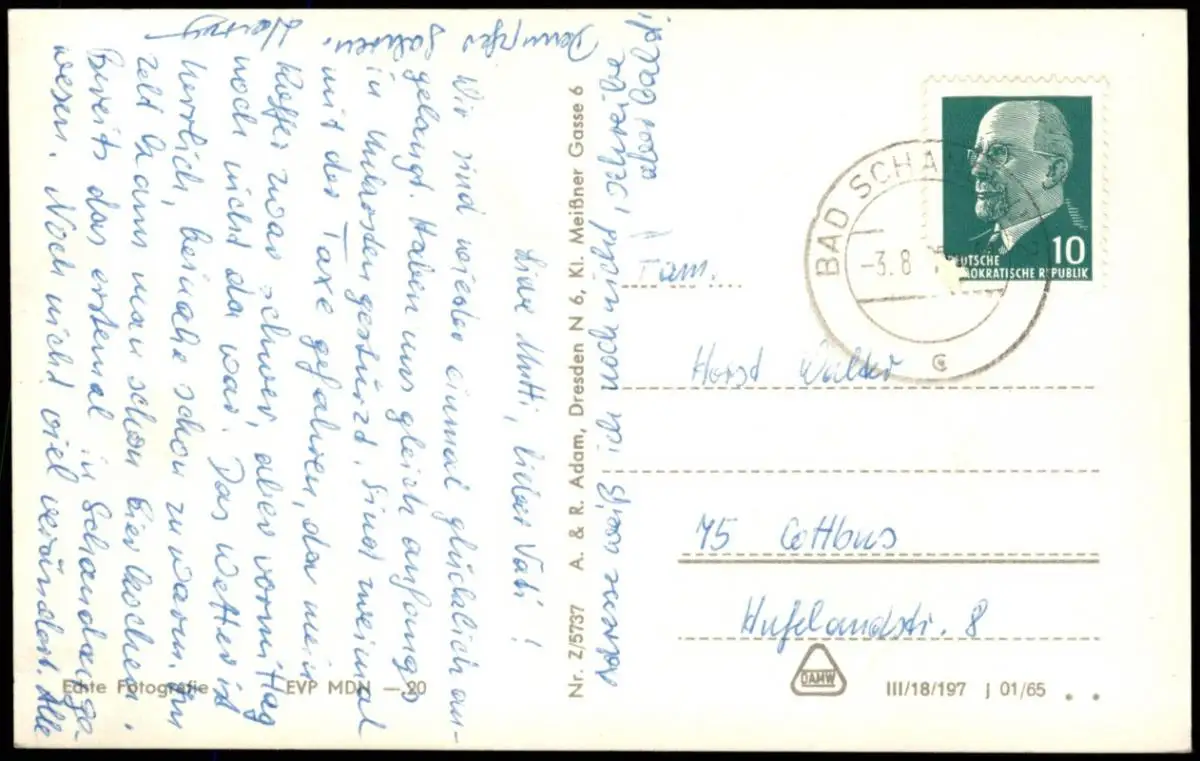 Liebe Mutti, lieber Vati!
Wir sind wieder einmal glücklich an-
gelangt. Haben uns gleich anfangs
in Unkosten gestürzt. Sind zweimal
mit der Taxe gefahren, da mein
Koffer zwar schwer, aber vormittag
noch nicht da war. Das Wetter ist
herrlich, beinahe schon zu warm. Im
Zelt kann man schon Bier kochen.
Bereits das erstemal in Schandau ge-
wesen. Noch nicht viel verändert. Alle
Dampfer fahren.
Adresse weiß ich noch nicht, schreibe
aber bald!
Nr. Z/5737 A. & R. Adam, Dresden N 6, Kl. Meißner Gasse 6
Echte Fotografie EVP MDN — 20
BAD SCHAN
-3.8
c
10
DEUTSCHE
DEMOKRATISCHE REPUBLIK
Fam.
Horst Walter
75 Cottbus
Hufelandstr. 8
DAMW
III/18/197 J 01/65